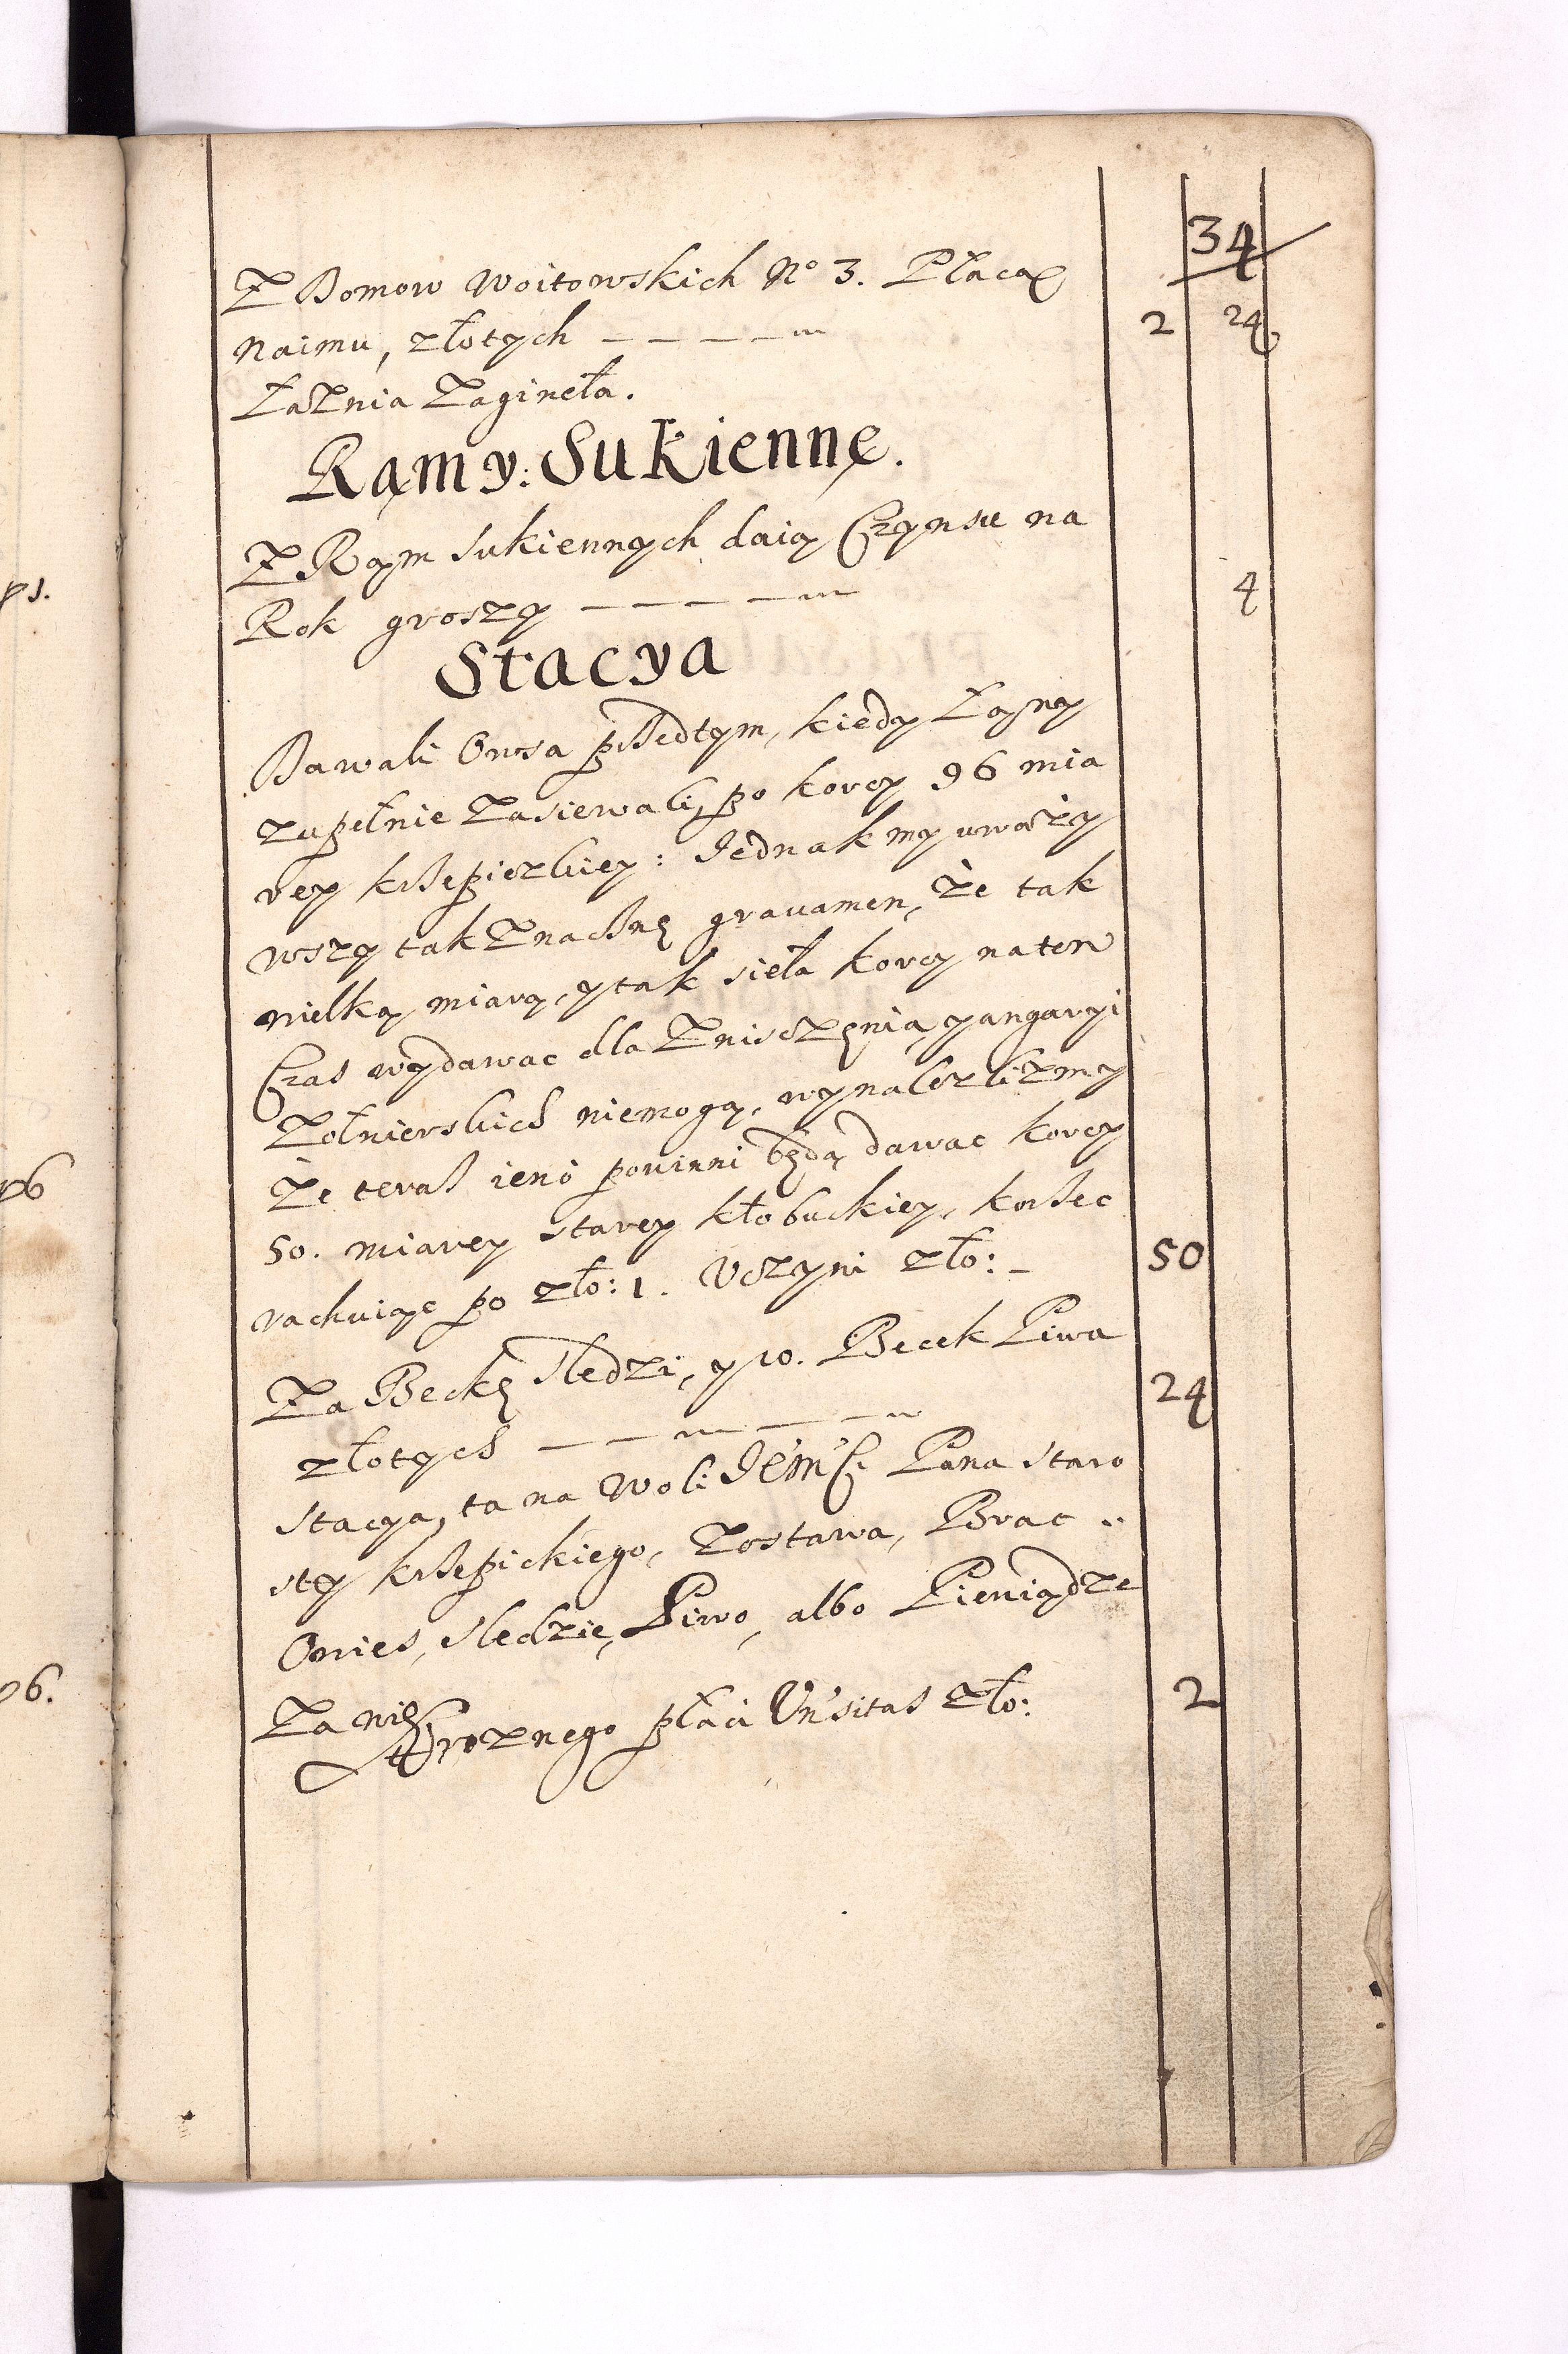 34
Z Domow Woitowskich No 3. Płacą
Naimu, złotych - - - - - 2 24
Łaznia Zagineła.
Rąmy: Sukienne.
Z Rąm Sukiennych daią Czynsu na
Rok groszy - - - - 4
Stacya
Dawali Owsa przedtym, kiedy Łąny
zupełnie Zasiewali, po korcy 96 mia
rey krzepiczkiey: Jednak my uważy
wszy tak Znacznę gravamen, że tak
wielką miarą, y tak sieła korcy na ten
Czas wydawac dla Znisczęnia, y angaryi
Żołnierskich niemogą, wynalezlizmy
Że teraz ieno powinni będą dawac korcy
50. miarey starey kłobuckiey, korzec
rachuiąc po zło: 1. Uczyni zło: - 50
Za Beckę sledzi, y 10. Becek Piwa
złotych - - - - - 24
Stacya, ta na Woli Jem̃ści Pana Staro
sty krzepickiego, Zostawa, Brac ..
Owies, sledzie, Piwo, albo Pieniądze
Za nię
Strożnego płaci Un̓sitas zło: 2
ps.
96
96.